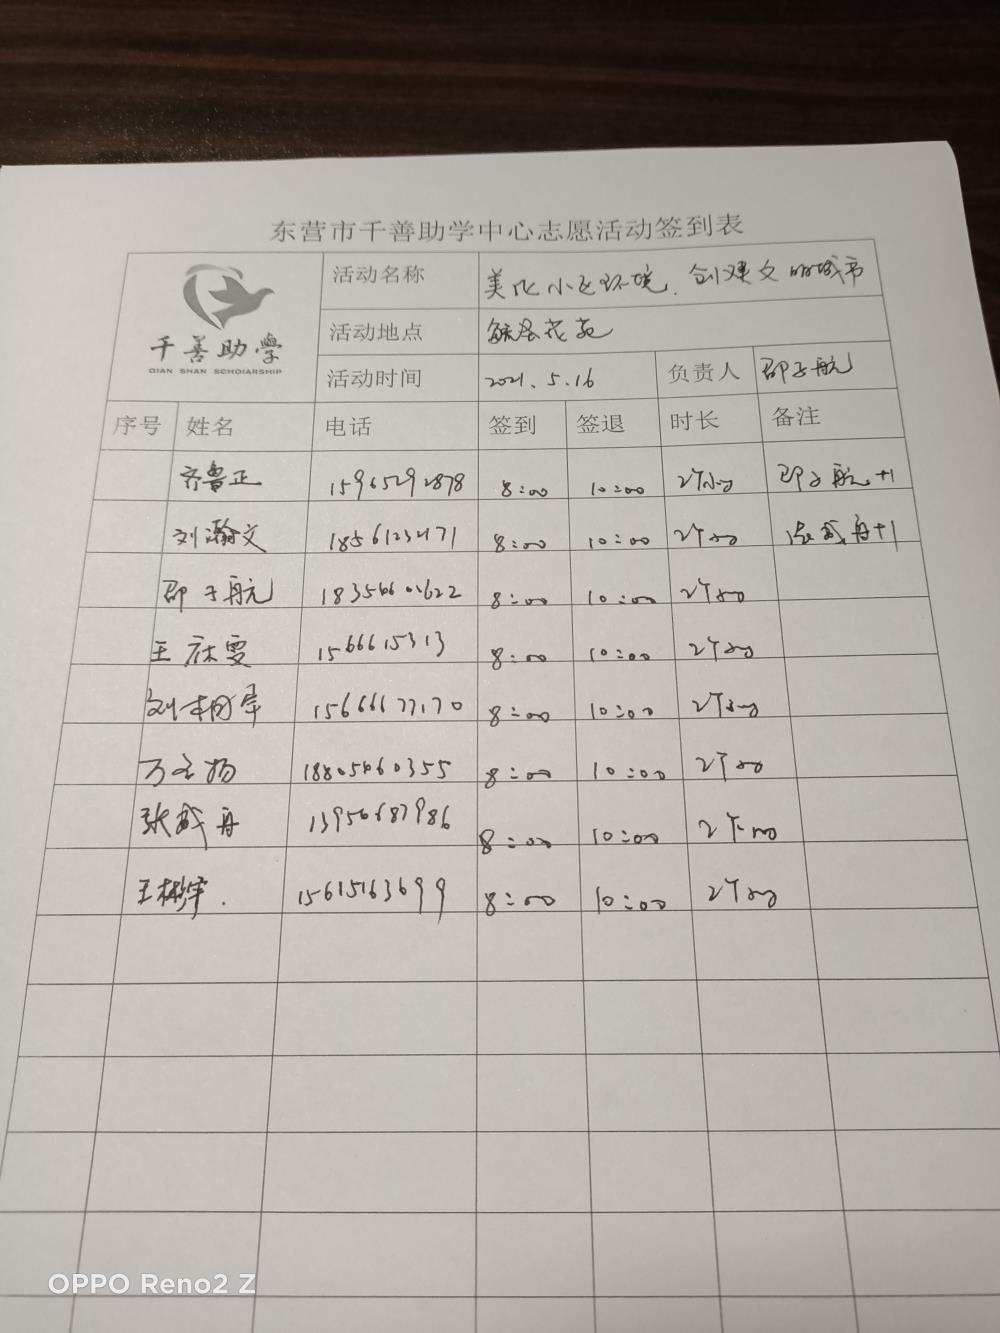 东营市千善助学中心志愿活动签到表
千善助学
QIAN SHAN SCHOLARSHIP
活动名称 美化小区环境,创建文明城市
活动地点 花苑
活动时间 2021.5.16 负责人 邵子航
序号 姓名 电话 签到 签退 时长 备注
齐鲁正 15965292878 8:00 10:00 2个小时 邵子航+1
刘瀚文 18561232171 8:00 10:00 2个小时 张成舟+1
邵子航 18354601622 8:00 10:00 2个小时
王 雯 15666153 13 8:00 10:00 2个小时
刘 15666177170 8:00 10:00 2个小时
万 扬 18805460355 8:00 10:00 2个小时
张成舟 13956687986 8:00 10:00 2个小时
王彬宇. 15615163699 8:00 10:00 2个小时
OPPO Reno2 Z